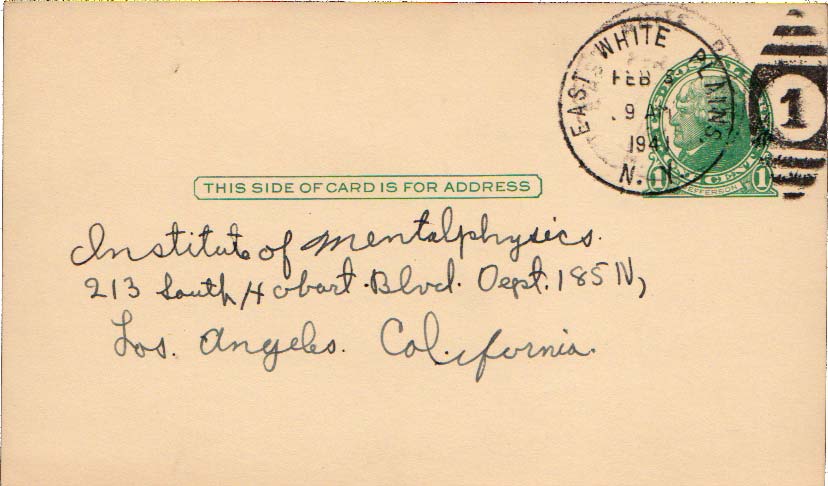 EAST WHITE PLAINS
FEB
9 AM
1941
N.
1
U.S. POSTAL
1 CENT 1
JEFFERSON
THIS SIDE OF CARD IS FOR ADDRESS
Institute of Mentalphysics.
213 South Hobart. Blvd. Dept. 185N,
Los. Angeles. California.